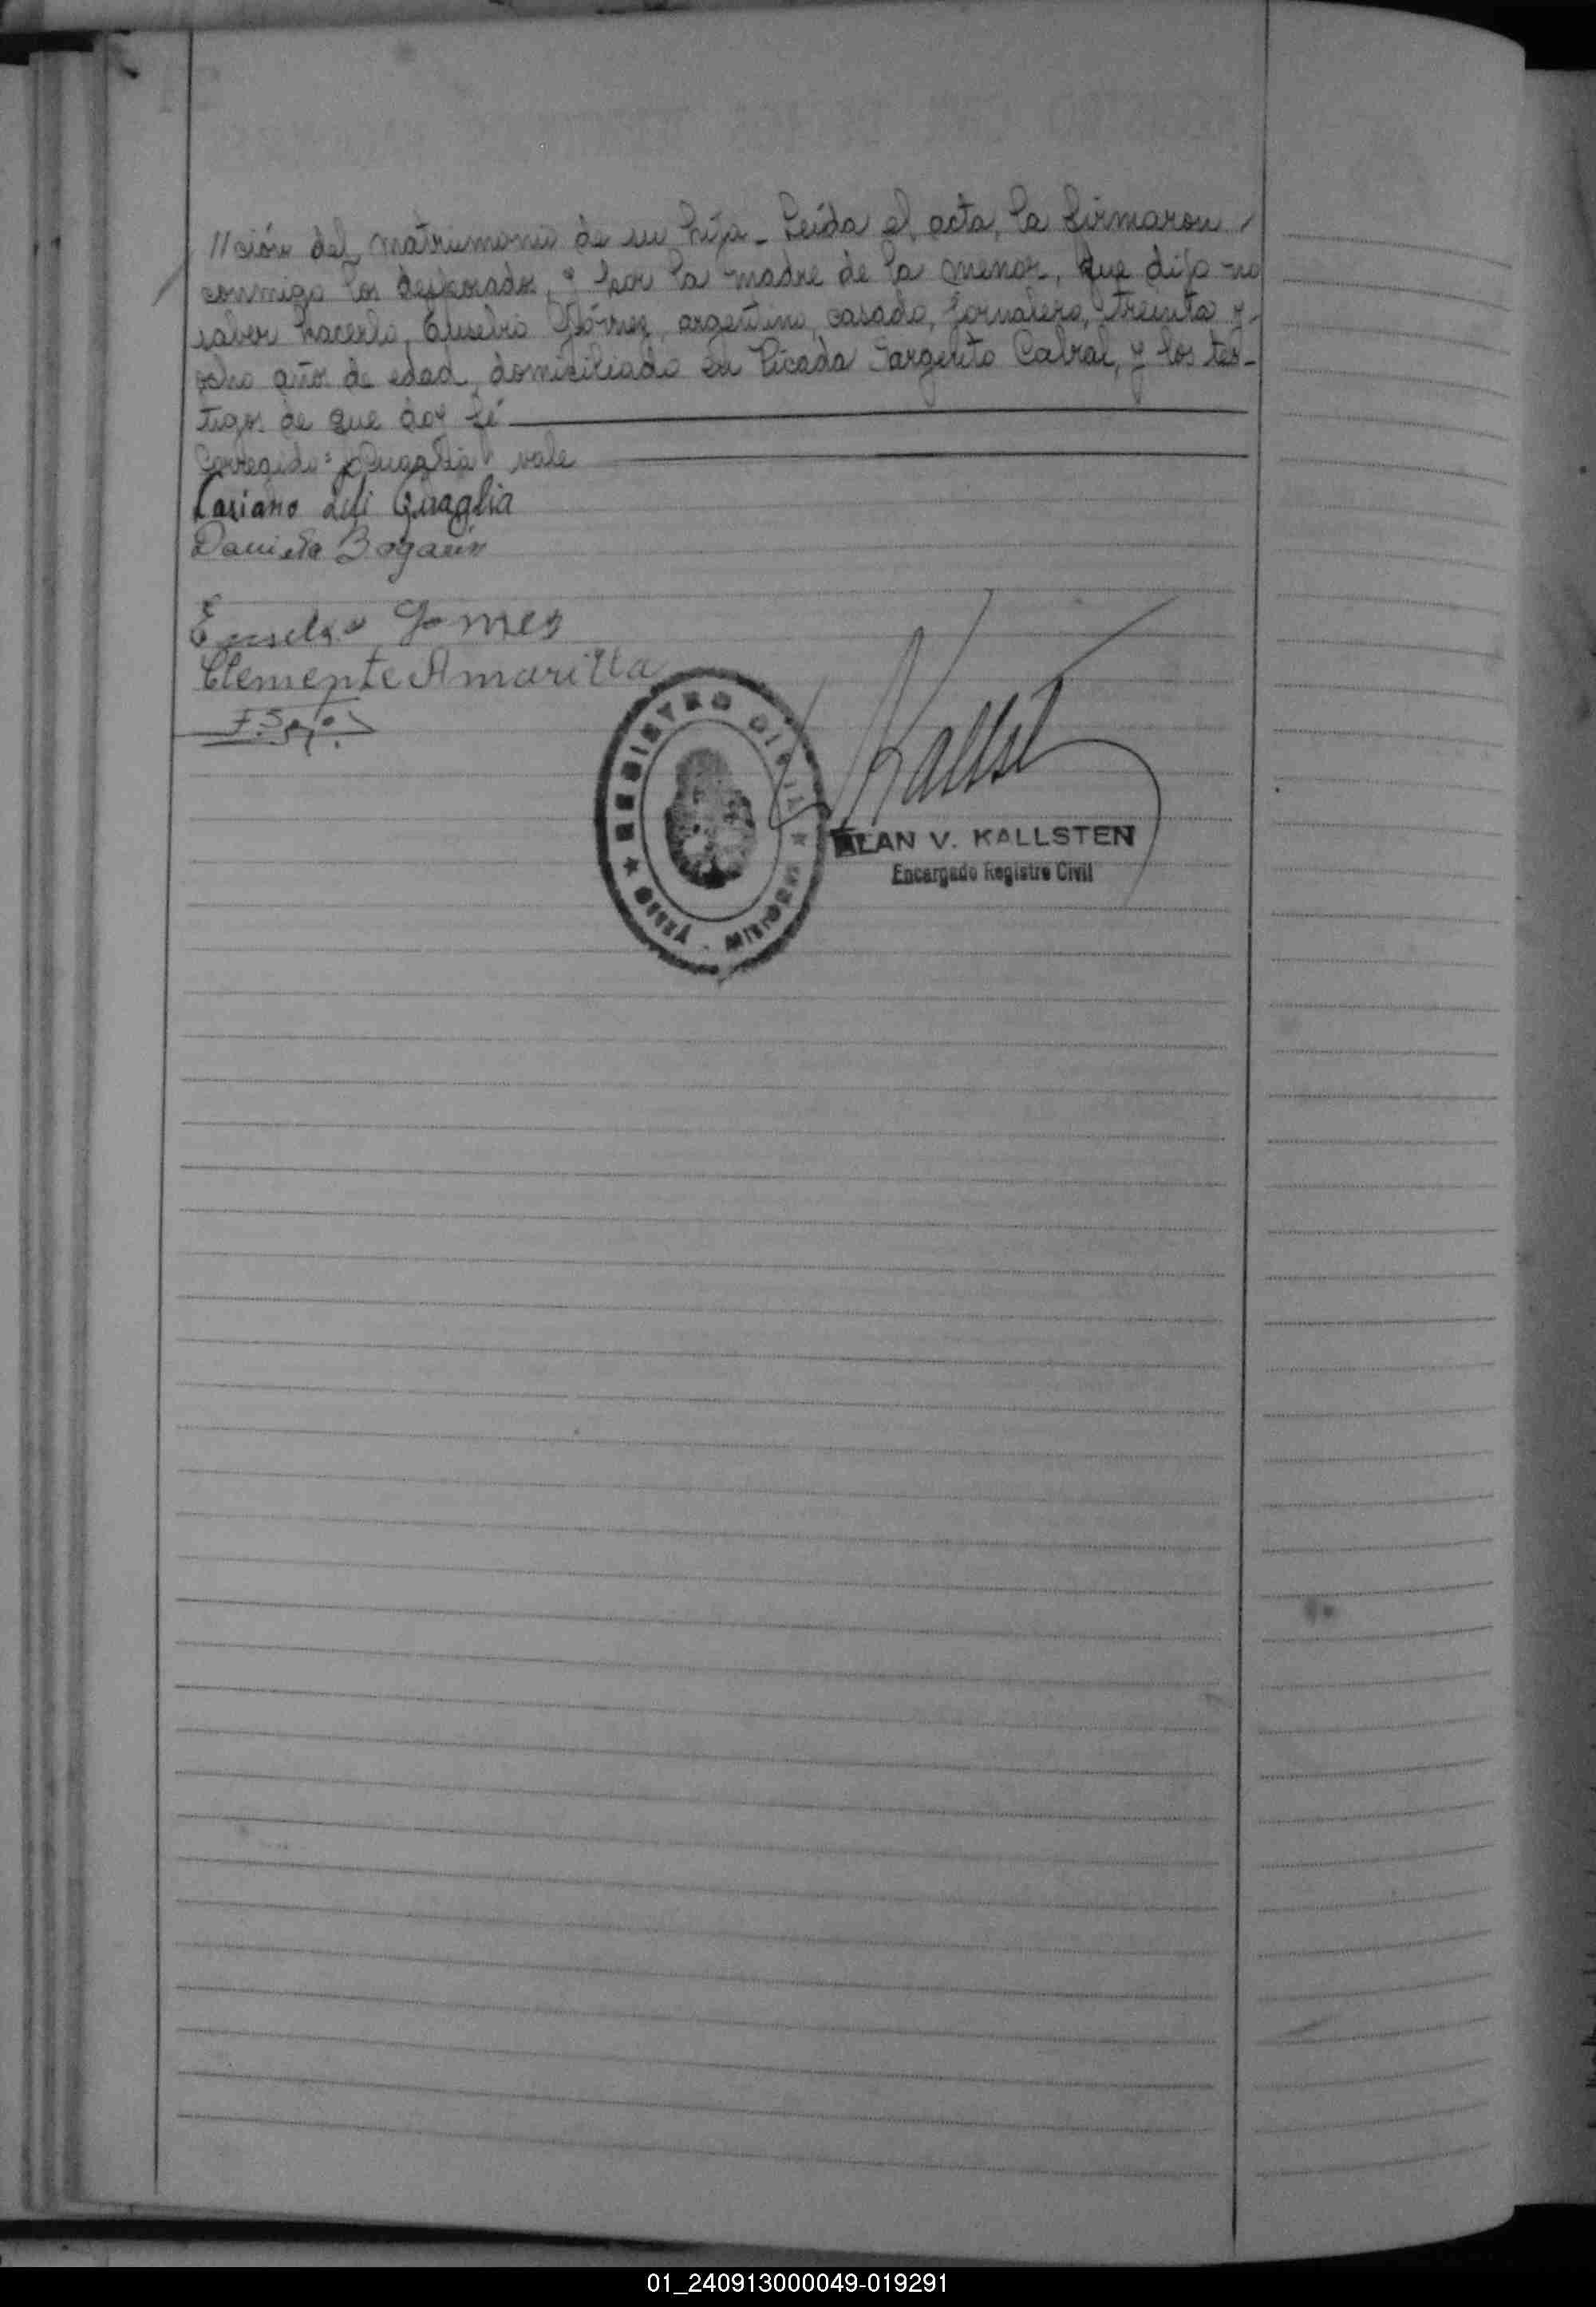 //ción del matrimonio de su hija_ Leída el acta, la firmaron
conmigo los desposados, y por la madre de la menor, que dijo no
saber hacerlo, Eusebio Gómez, argentino, casado, jornalero, treinta y
ocho años de edad, domiciliado en Picada Sargento Cabral, y los tes-
tigos de que doy fé
Corregido: "Quaglia" vale
Casiano deli Quaglia
Daniela Bogarin
Eusebio Gomes
Clemente Amarilla
REGISTRO CIVIL
MISIONES
ALAN V. KALLSTEN
Encargado Registro Civil
01_240913000049-019291